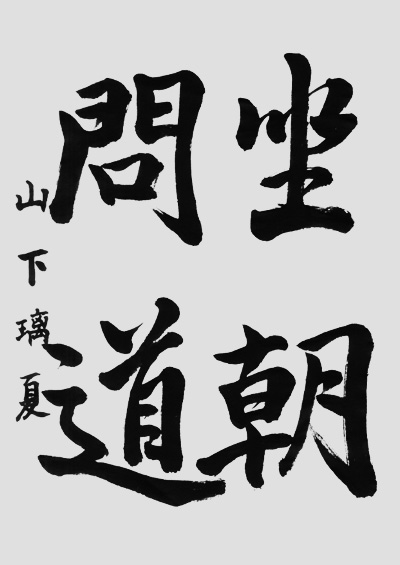 坐朝
問道
山下璃夏